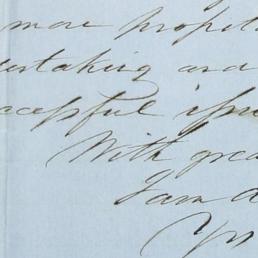 more propit
ertaking and
ccessful issu
With grea
I am d
Yr